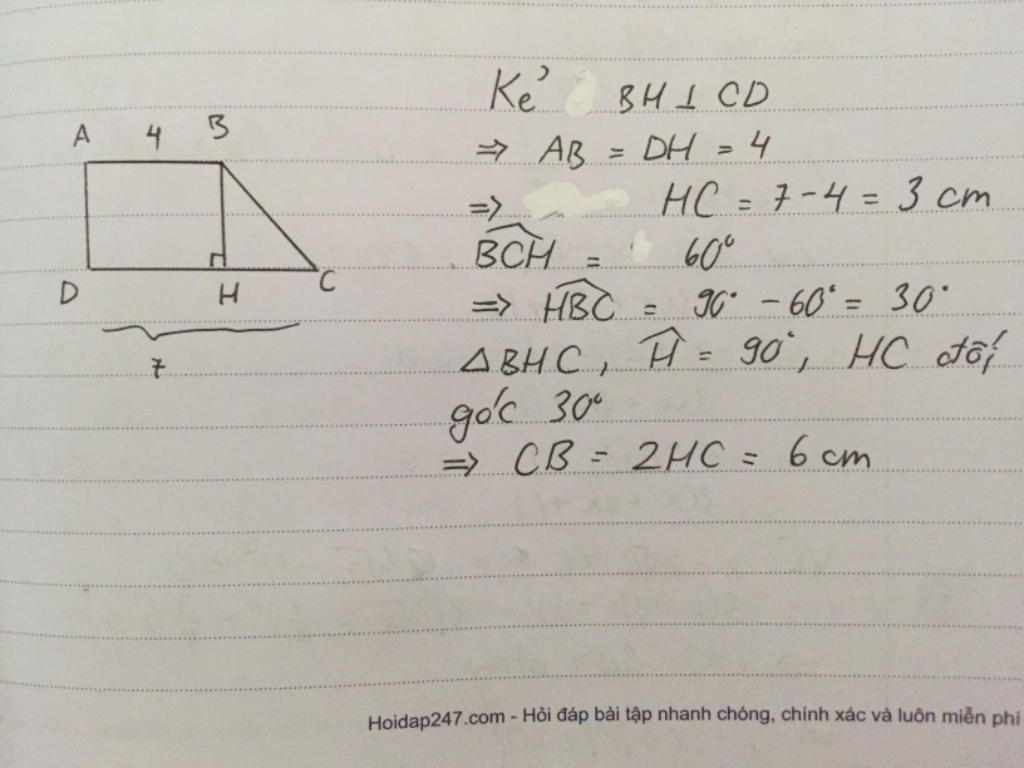 A 4 B
D H C
7
Kẻ BH ⊥ CD
⇒ AB = DH = 4
⇒ HC = 7 - 4 = 3 cm
\widehat{BCH} = 60°
⇒ \widehat{HBC} = 90° - 60° = 30°
△BHC, \widehat{H} = 90°, HC đối
góc 30°
⇒ CB = 2HC = 6 cm
Hoidap247.com - Hỏi đáp bài tập nhanh chóng, chính xác và luôn miễn phí